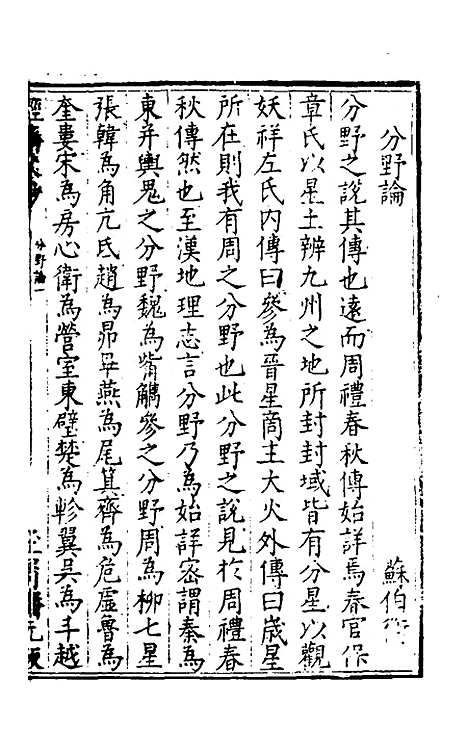 分野論
蘇伯衡
分野之說其傳也遠而周禮春秋傳始詳焉春官保
章氏以星土辨九州之地所封封域皆有分星以觀
妖祥左氏內傳曰參為晉星商主大火外傳曰歲星
所在則我有周之分野也此分野之說見於周禮春
秋傳然也至漢地理志言分野乃為始詳密謂秦為
東井輿鬼之分野魏為觜觿參之分野周為柳七星
張韓為角亢氐趙為昴畢燕為尾箕齊為危虛魯為
奎婁宋為房心衛為營室東壁楚為軫翼吳為斗越
分野論一